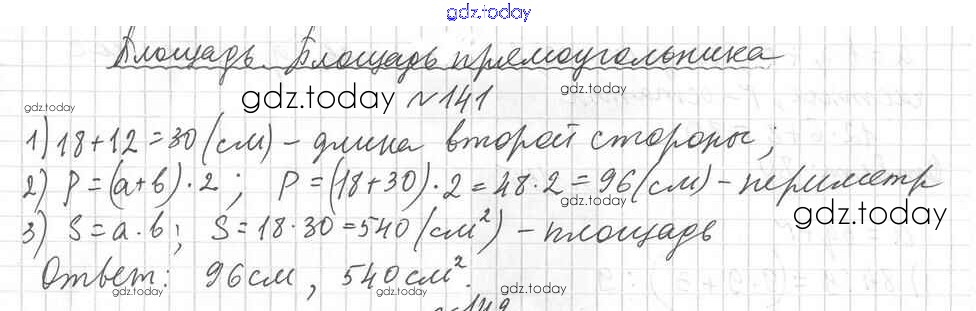 gdz.today
Площадь. Площадь прямоугольника
gdz.today gdz.today №141 gdz.today
1) 18+12=30(см) - длина второй стороны;
2) P=(a+b)·2; P=(18+30)·2=48·2=96(см) - периметр
gdz.today gdz.today gdz.today
3) S=a·b; S=18·30=540(см²) - площадь
Ответ: 96см, 540см².
gdz.today gdz.today